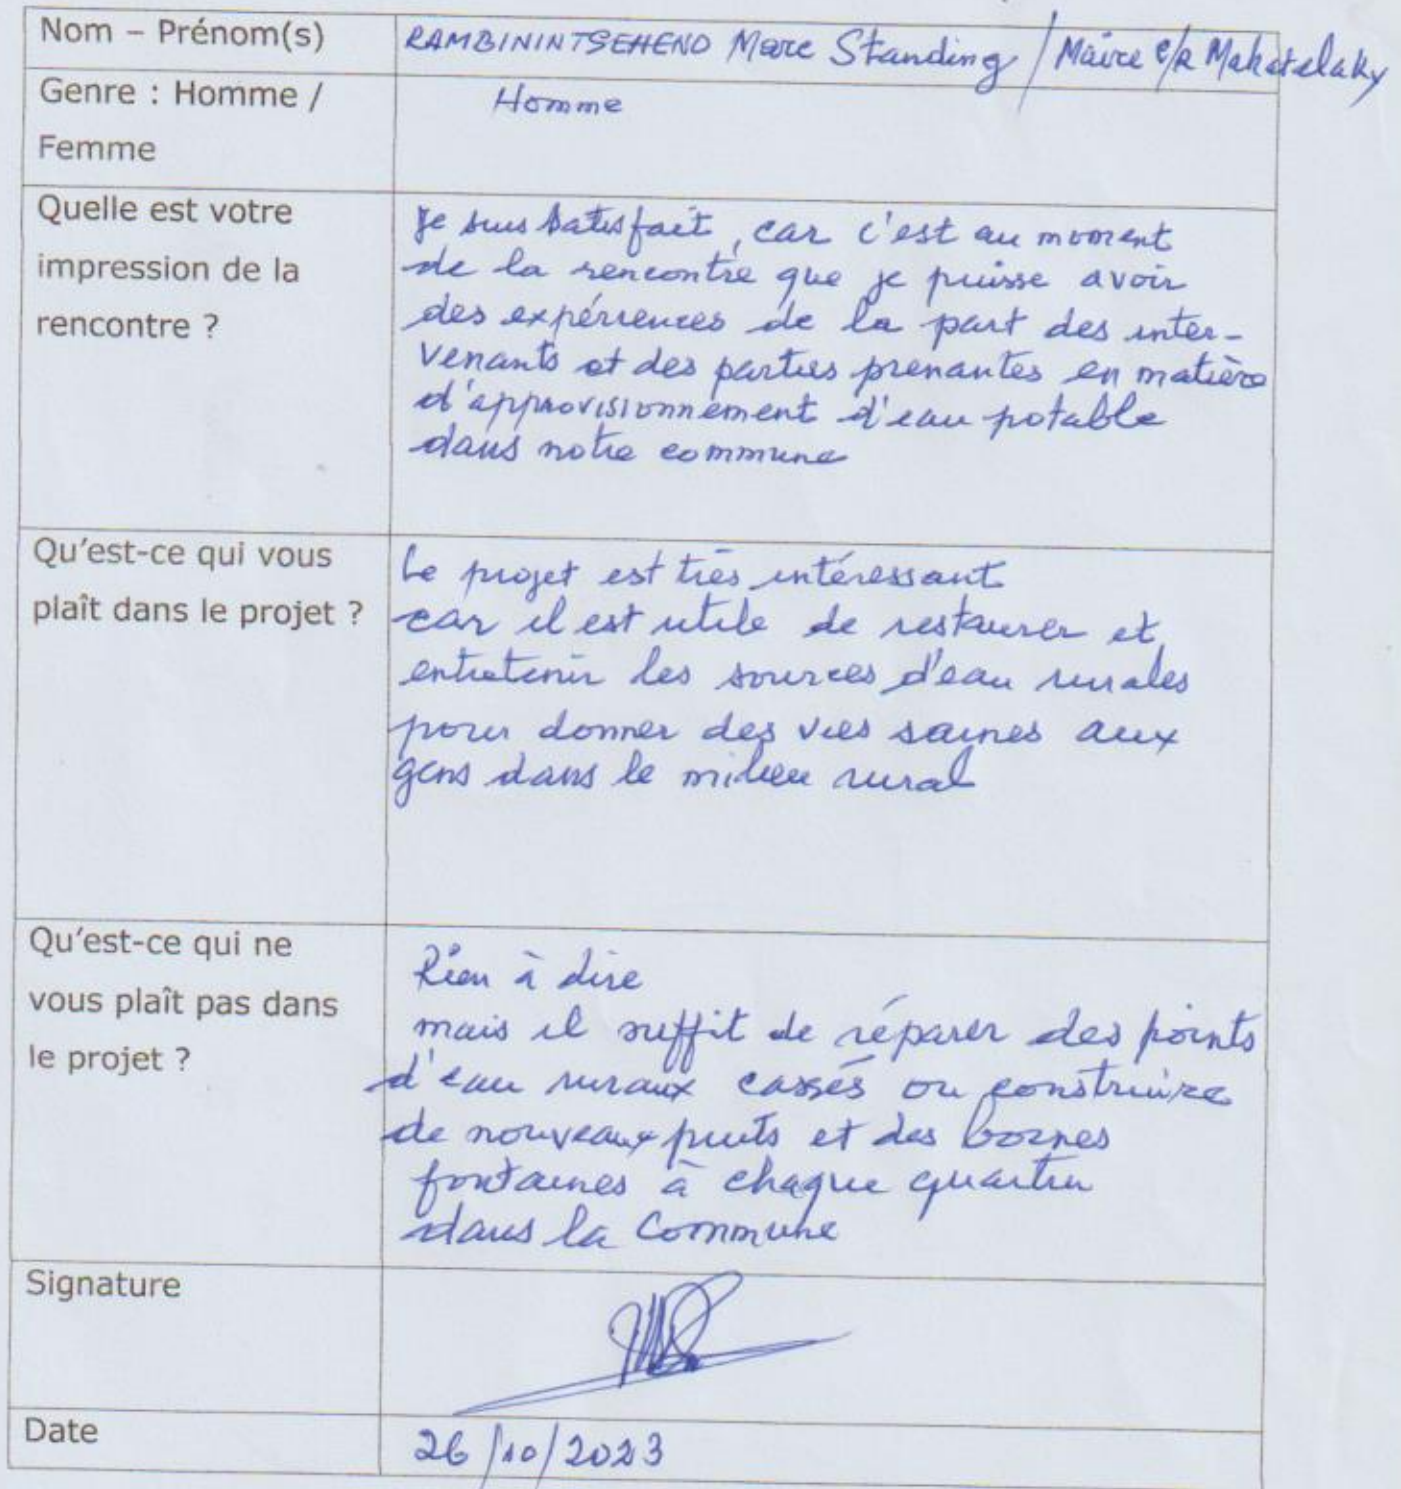 Nom – Prénom(s)
RAMBININTSEHENO Marc Standing / Maire C/R Mahatelaky
Genre : Homme /
Femme
Homme
Quelle est votre
impression de la
rencontre ?
Je suis satisfait, car c'est au moment
de la rencontre que je puisse avoir
des expériences de la part des inter-
venants et des parties prenantes en matière
d'approvisionnement d'eau potable
dans notre commune
Qu'est-ce qui vous
plaît dans le projet ?
Le projet est très intéressant
car il est utile de restaurer et
entretenir les sources d'eau rurales
pour donner des vies saines aux
gens dans le milieu rural
Qu'est-ce qui ne
vous plaît pas dans
le projet ?
Rien à dire
mais il suffit de réparer des points
d'eau ruraux cassés ou construire
de nouveaux puits et des bornes
fontaines à chaque quartier
dans la Commune
Signature
Date
26/10/2023